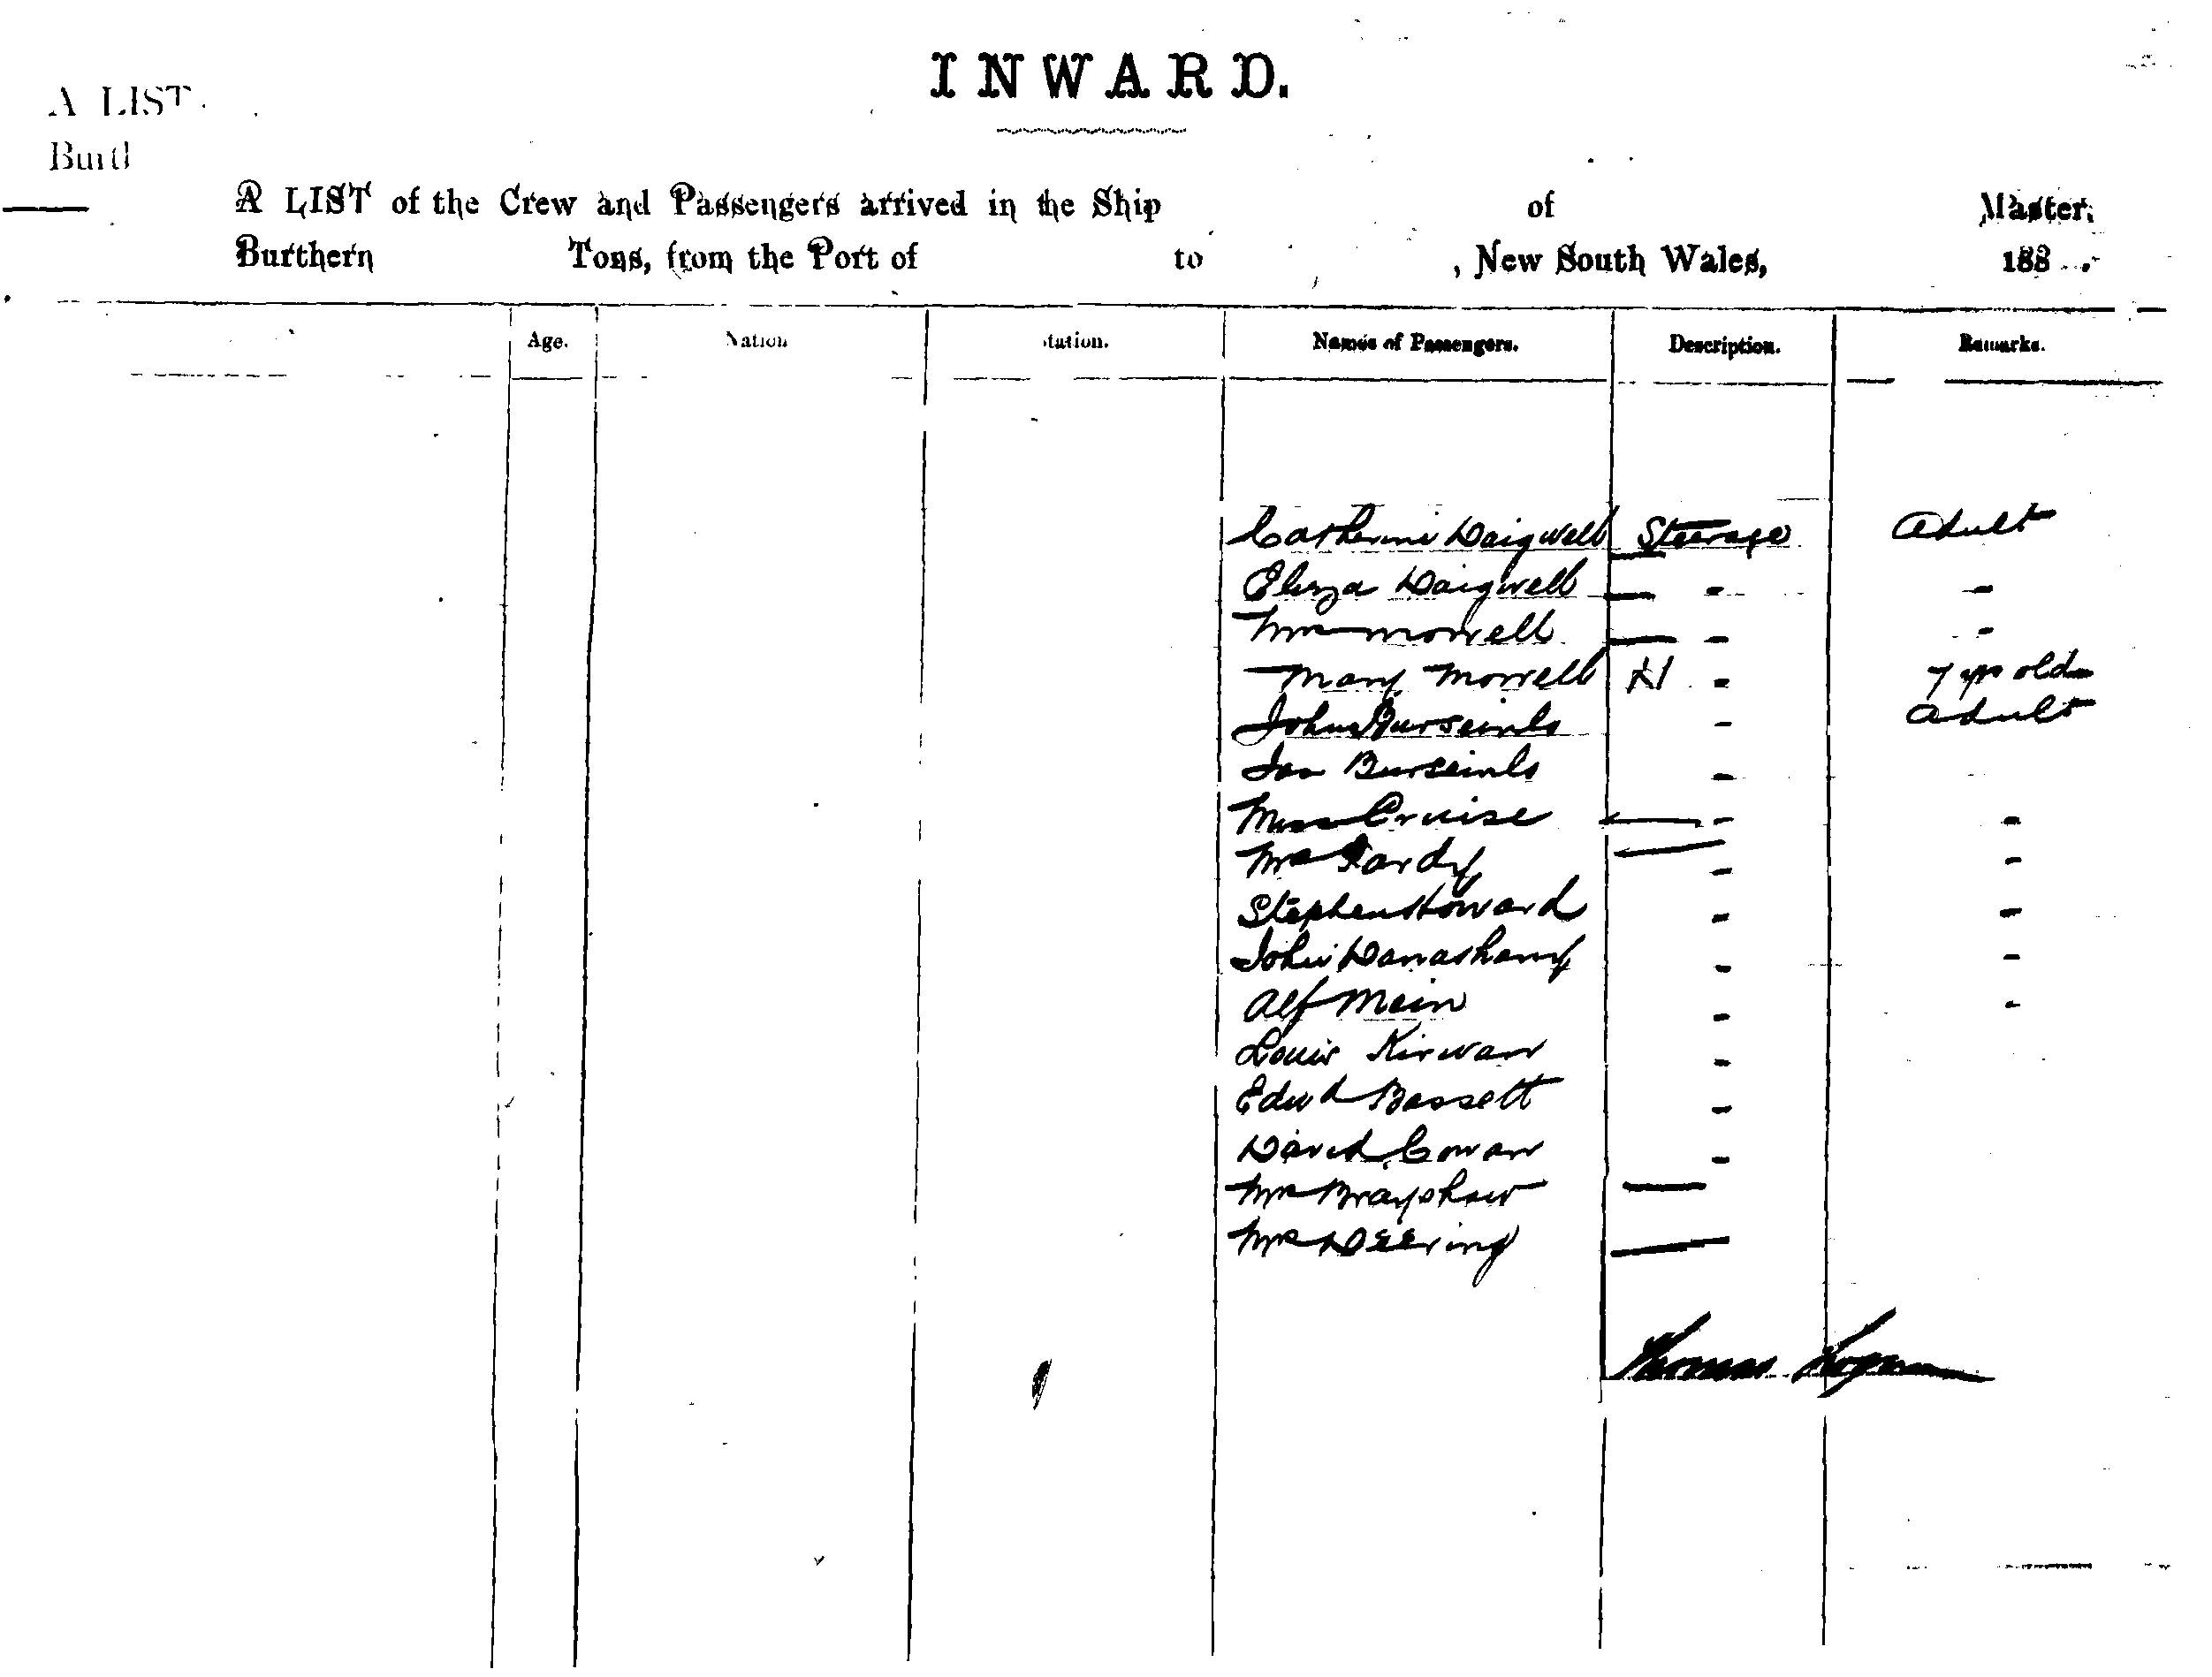 INWARD.
A LIST
A LIST of the Crew and Passengers arrived in the Ship of Master,
Burthern Tons, from the Port of to , New South Wales, 188 .
Age. Nation tation. Names of Passengers. Description. Remarks.
Catherine Daigwell Steerage Adult
Eliza Daigwell - -
Mrs Morrell - -
Mary Morrell - 7 yrs old
John - Adult
Jas -
Miss Cruise - -
Mrs - -
Stephen Howard - -
John - -
Alf Mein - -
Louis Kirwan -
Edwd Bassett -
David Cowan -
Mrs Brayshaw
Mrs Deering
Thomas Logan